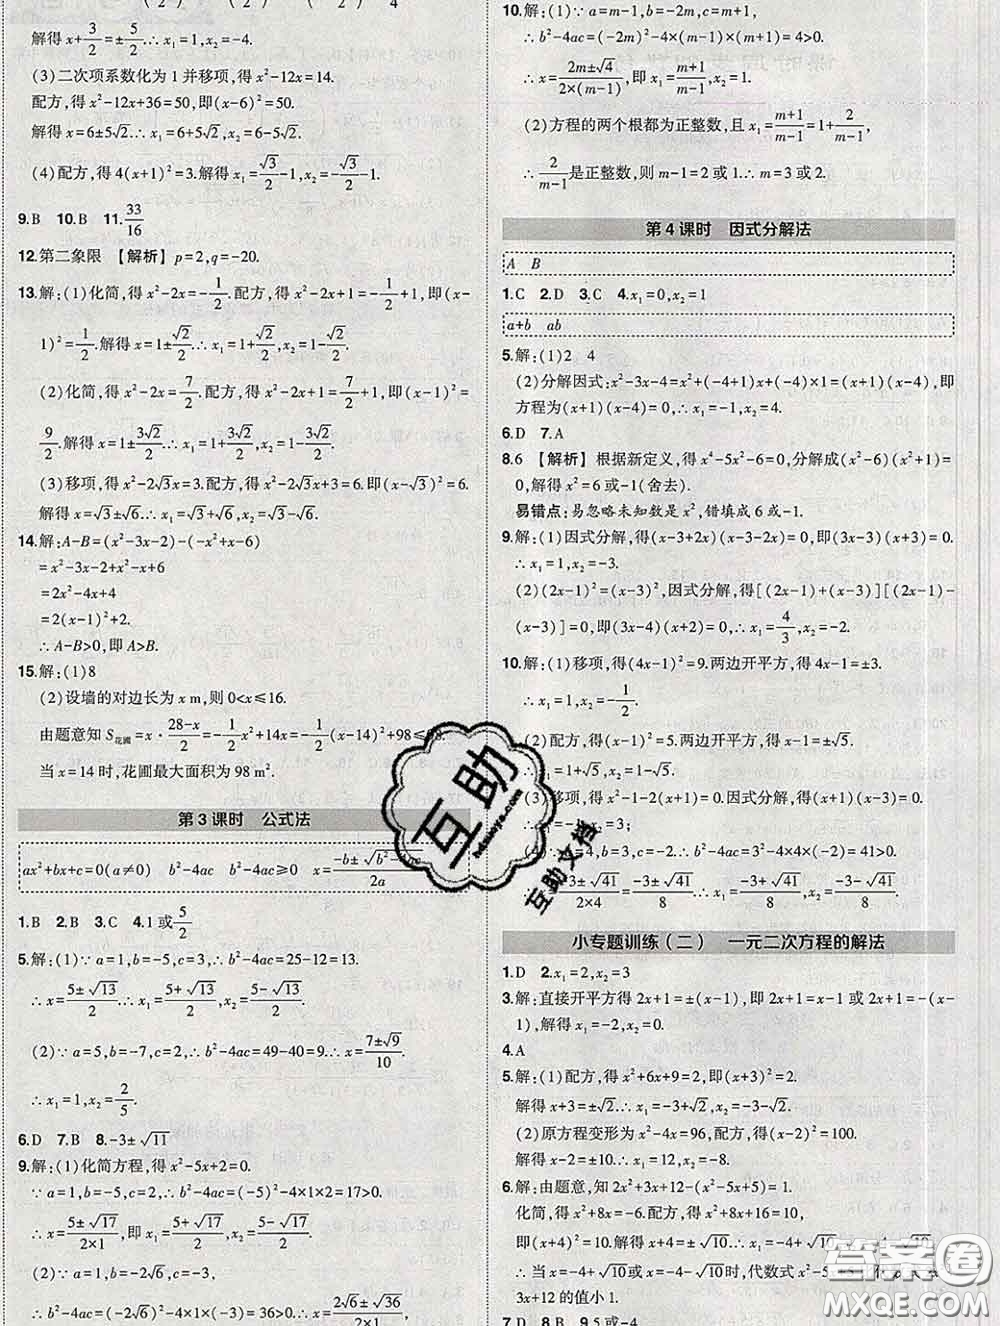 解得x+3/2=±5/2.∴x₁=1,x₂=-4.
(3)二次项系数化为1并移项,得x²-12x=14.
配方,得x²-12x+36=50,即(x-6)²=50.
解得x=6±5√2.∴x₁=6+5√2,x₂=6-5√2.
(4)配方,得4(x+1)²=3.解得x₁=√3/2-1,x₂=-√3/2-1.
9.B 10.B 11.33/16
12.第二象限 【解析】p=2,q=-20.
13.解:(1)化简,得x²-2x=-1/2.配方,得x²-2x+1=-1/2+1,即(x-
1)²=1/2.解得x=1±√2/2.∴x₁=1+√2/2,x₂=1-√2/2.
(2)化简,得x²-2x=7/2.配方,得x²-2x+1=7/2+1,即(x-1)²=
9/2.解得x=1±3√2/2.∴x₁=1+3√2/2,x₂=1-3√2/2.
(3)移项,得x²-2√3x=3.配方,得x²-2√3x+3=6.即(x-√3)²=6.
解得x=√3±√6.∴x₁=√3+√6,x₂=√3-√6.
14.解:A-B=(x²-3x-2)-(-x²+x-6)
=x²-3x-2+x²-x+6
=2x²-4x+4
=2(x-1)²+2.
∴A-B>0,即A>B.
15.解:(1)8
(2)设墙的对边长为x m,则0<x≤16.
由题意知S花圃=x·(28-x)/2=-1/2x²+14x=-1/2(x-14)²+98≤98.
当x=14时,花圃最大面积为98 m².
第3课时 公式法
ax²+bx+c=0(a≠0) b²-4ac b²-4ac≥0 x=(-b±√(b²-4ac))/2a
1.B 2.B 3.C 4.1或5/2
5.解:(1)∵a=1,b=-5,c=3,∴b²-4ac=25-12=13.
∴x=(5±√13)/2.∴x₁=(5+√13)/2,x₂=(5-√13)/2.
(2)∵a=5,b=-7,c=2,∴b²-4ac=49-40=9.∴x=(7±√9)/10.
∴x₁=1,x₂=2/5.
6.D 7.B 8.-3±√11
9.解:(1)化简方程,得x²-5x+2=0.
∵a=1,b=-5,c=2,∴b²-4ac=(-5)²-4×1×2=17>0.
∴x=(5±√17)/(2×1).∴x₁=(5+√17)/2,x₂=(5-√17)/2.
(2)∵a=1,b=-2√6,c=-3,
∴b²-4ac=(-2√6)²-4×1×(-3)=36>0.∴x=(2√6±√36)/(2×1).
10.解:(1)∵a=m-1,b=-2m,c=m+1,
∴b²-4ac=(-2m)²-4×(m-1)(m+1)=4>0.
∴x=(2m±√4)/(2×(m-1)),即x₁=(m+1)/(m-1),x₂=1.
(2)方程的两个根都为正整数,且x₁=(m+1)/(m-1)=1+2/(m-1),
∴2/(m-1)是正整数,则m-1=2或1.∴m=3或2.
第4课时 因式分解法
A B
1.C 2.D 3.C 4.x₁=0,x₂=1
a+b ab
5.解:(1)2 4
(2)分解因式:x²-3x-4=x²+(-4+1)x+(-4)×1=(x+1)(x-4),即
方程为(x+1)(x-4)=0,∴x₁=-1,x₂=4.
6.D 7.A
8.6 【解析】根据新定义,得x⁴-5x²-6=0,分解成(x²-6)(x²+1)=
0,解得x²=6或-1(舍去).
易错点:易忽略未知数是x²,错填成6或-1.
9.解:(1)因式分解,得(x-3+2x)(x-3-2x)=0,即(3x-3)(x+3)=0.
∴x₁=1,x₂=-3.
(2)(2x-1)²=(x-3)²,因式分解,得[(2x-1)+(x-3)][(2x-1)-
(x-3)]=0,即(3x-4)(x+2)=0,∴x₁=4/3,x₂=-2.
10.解:(1)移项,得(4x-1)²=9.两边开平方,得4x-1=±3.
∴x₁=1,x₂=-1/2.
(2)配方,得(x-1)²=5.两边开平方,得x-1=±√5.
∴x₁=1+√5,x₂=1-√5.
(3)移项,得3x(x-3)+(x-3)=0.因式分解,得(x-3)(3x+1)=0.
∴x₁=3;
∴b²-4ac=3²-4×2×(-2)=41>0.
∴x=(-3±√41)/(2×4)=(-3±√41)/8.∴x₁=(-3+√41)/8,x₂=(-3-√41)/8.
小专题训练(二) 一元二次方程的解法
1.D 2.x₁=2,x₂=3
3.解:直接开平方得2x+1=±(x-1),即2x+1=x-1或2x+1=-(x-
1),解得x₁=-2,x₂=0.
4.A
5.解:(1)配方,得x²+6x+9=2,即(x+3)²=2.
解得x+3=±√2.∴x₁=-3+√2,x₂=-3-√2.
(2)原方程变形为x²-4x=96,配方,得(x-2)²=100.
解得x-2=±10.∴x₁=12,x₂=-8.
6.解:由题意,知2x²+3x+12-(-5x+1)=-1.
化简,得x²+8x=-6.配方,得x²+8x+16=10,
即(x+4)²=10.解得x+4=±√10.∴x=-4±√10.
∴当x=-4+√10或x=-4-√10时,代数式
3x+12的值小1.
7.D 8.B 9.5或-4
互助
hdzuoye.com
互助文档
答案圈
MXQE.COM